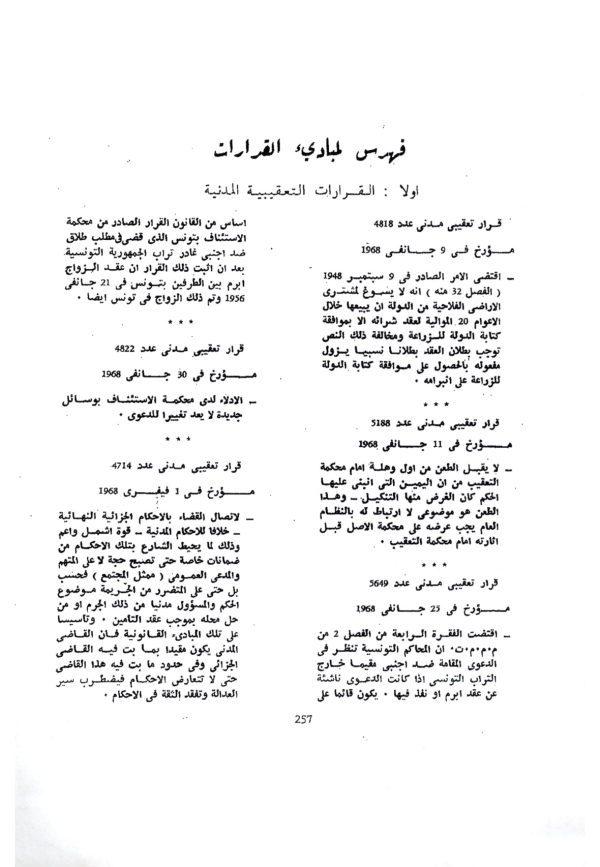 فهرس لمباديء القرارات
اولا : القرارات التعقيبية المدنية
قرار تعقيبى مدنى عدد 4818
مؤرخ فى 9 جانفى 1968
ـ اقتضى الامر الصادر فى 9 سبتمبر 1948
( الفصل 32 منه ) انه لا يسوغ لمشترى
الاراضى الفلاحية من الدولة ان يبيعها خلال
الاعوام 20 الموالية لعقد شرائه الا بموافقة
كتابة الدولة للزراعة ومخالفة ذلك النص
توجب بطلان العقد بطلانا نسبيا يزول
مفعوله بالحصول على موافقة كتابة الدولة
للزراعة على انبرامه ٠
* * *
قرار تعقيبى مدنى عدد 5188
مؤرخ فى 11 جانفى 1968
ـ لا يقبل الطعن من اول وهلة امام محكمة
التعقيب من ان اليمين التى انبنى عليها
الحكم كان الغرض منها التنكيل ـ وهذا
الطعن هو موضوعى لا ارتباط له بالنظام
العام يجب عرضه على محكمة الاصل قبل
اثارته امام محكمة التعقيب ٠
* * *
قرار تعقيبى مدنى عدد 5649
مؤرخ فى 25 جانفى 1968
ـ اقتضت الفقرة الرابعة من الفصل 2 من
م٠م٠م٠ت٠ ان المحاكم التونسية تنظر فى
الدعوى المقامة ضد اجنبى مقيما خارج
التراب التونسى اذا كانت الدعوى ناشئة
عن عقد ابرم او نفذ فيها ٠ يكون قائما على
اساس من القانون القرار الصادر من محكمة
الاستئناف بتونس الذى قضى فى مطلب طلاق
ضد اجنبى غادر تراب الجمهورية التونسية
بعد ان اثبت ذلك القرار ان عقد الزواج
ابرم بين الطرفين بتونس فى 21 جانفى
1956 وتم ذلك الزواج فى تونس ايضا ٠
* * *
قرار تعقيبى مدنى عدد 4822
مؤرخ فى 30 جانفى 1968
ـ الادلاء لدى محكمة الاستئناف بوسائل
جديدة لا يعد تغييرا للدعوى ٠
* * *
قرار تعقيبى مدنى عدد 4714
مؤرخ فى 1 فيفرى 1968
ـ لاتصال القضاء بالاحكام الجزائية النهائية
ـ خلافا للاحكام المدنية ـ قوة اشمل واعم
وذلك لما يحيط الشارع بتلك الاحكام من
ضمانات خاصة حتى تصبح حجة لا على المتهم
والمدعى العمومى ( ممثل المجتمع ) فحسب
بل حتى على المتضرر من الجريمة موضوع
الحكم والمسؤول مدنيا من ذلك الجرم او من
حل محله بموجب عقد التامين ٠ وتاسيسا
على تلك المبادىء القانونية فان القاضى
المدنى يكون مقيدا بما بت فيه القاضى
الجزائى وفى حدود ما بت فيه هذا القاضى
حتى لا تتعارض الاحكام فيضطرب سير
العدالة وتفقد الثقة فى الاحكام ٠
257